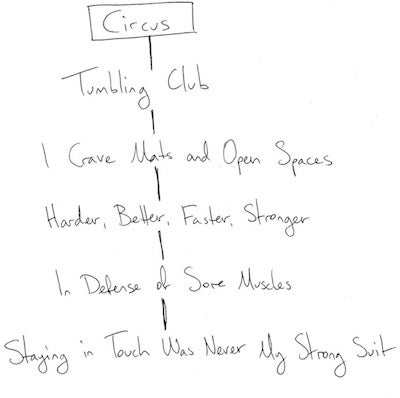 Circus
Tumbling Club
I Crave Mats and Open Spaces
Harder, Better, Faster, Stronger
In Defense of Sore Muscles
Staying in Touch Was Never My Strong Suit